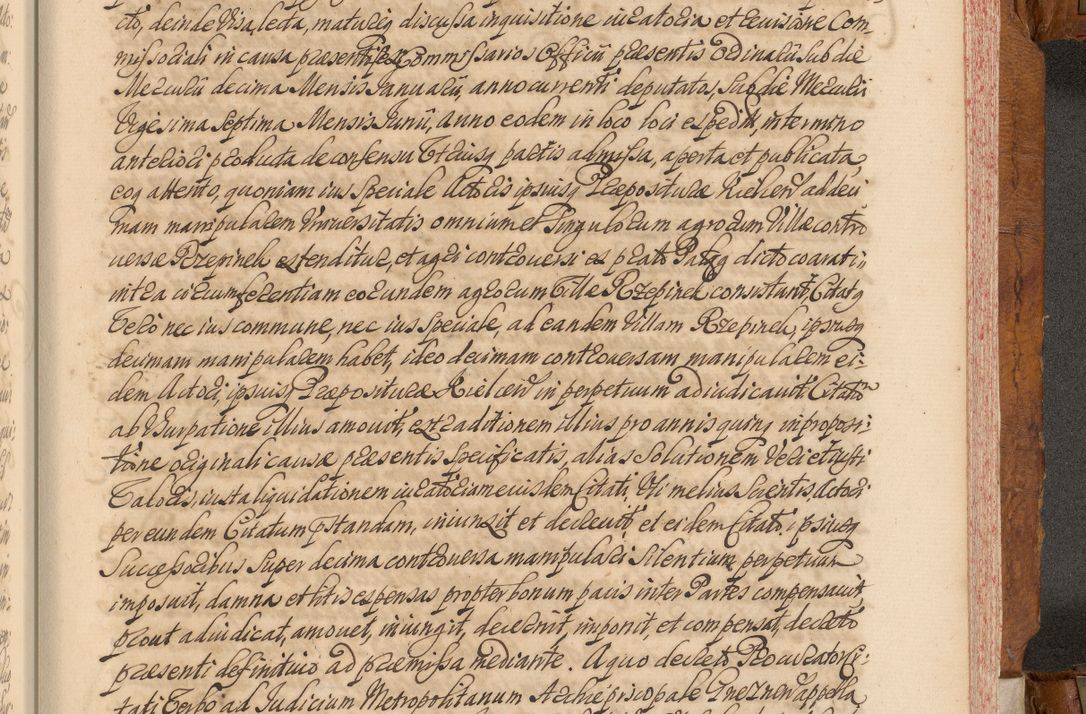 cto, deinde visa, lecta, matureq discussa inquisitione iuratoria et revisione Com-
missoriali in causa præsenti, per Commissarios Officii præsentis ordinarii sub die
Mercurii decima Mensis Januarii, anno currenti deputatos, sub die Mercurii
Vigesima Septima Mensis Junii, Anno eodem in loco loci expedita, in termino
anteriori producta de consensu utriusq partis admissa, aperta et publicata
eoq attento, quoniam ius speciale Actoris ipsiusq Præposituræ Kielcen ad deci
mam manipularem Universitatis omnium et singulorum agrorum Villæ contro
versæ Rzepinek extenditur, et agri controversi ex prato Palug dicto coarati,
intra circumferentiam eorundem agrorum Villæ Rzepinek consistant, Citatq
vero nec ius commune, nec ius speciale, ad eandem Villam Rzepinek, ipsiusq
decimam manipularem habet, ideo decimam controversam manipularem ei-
dem Actori, ipsiusq Præposituræ Kielcen in perpetuum adiudicavit, Citatum
ab Usurpatione illius amovit, extraditionem illius pro annis quinq in proposi-
tione originali causæ præsentis specificatis, alias solutionem veri et iusti
valoris, iuxta liquidationem iuratoriam eiusdem Citati, Uti melius scientis Actori
per eundem Citatum præstandam, iniunxit et decrevit, et eidem Citato ipsiusq
Successoribus super decima controversa manipulari silentium perpetuum
imposuit, damna et litis expensas propter bonum pacis inter Partes compensavit
prout adiudicat, amovet, iniungit, decernit, imponit, et compensat, decreto
præsenti definitivo ad præmissa mediante. A quo decreto Procurator Ci-
tati verbo ad Judicium Metropolitanum Archiepiscopale Gneznen appella